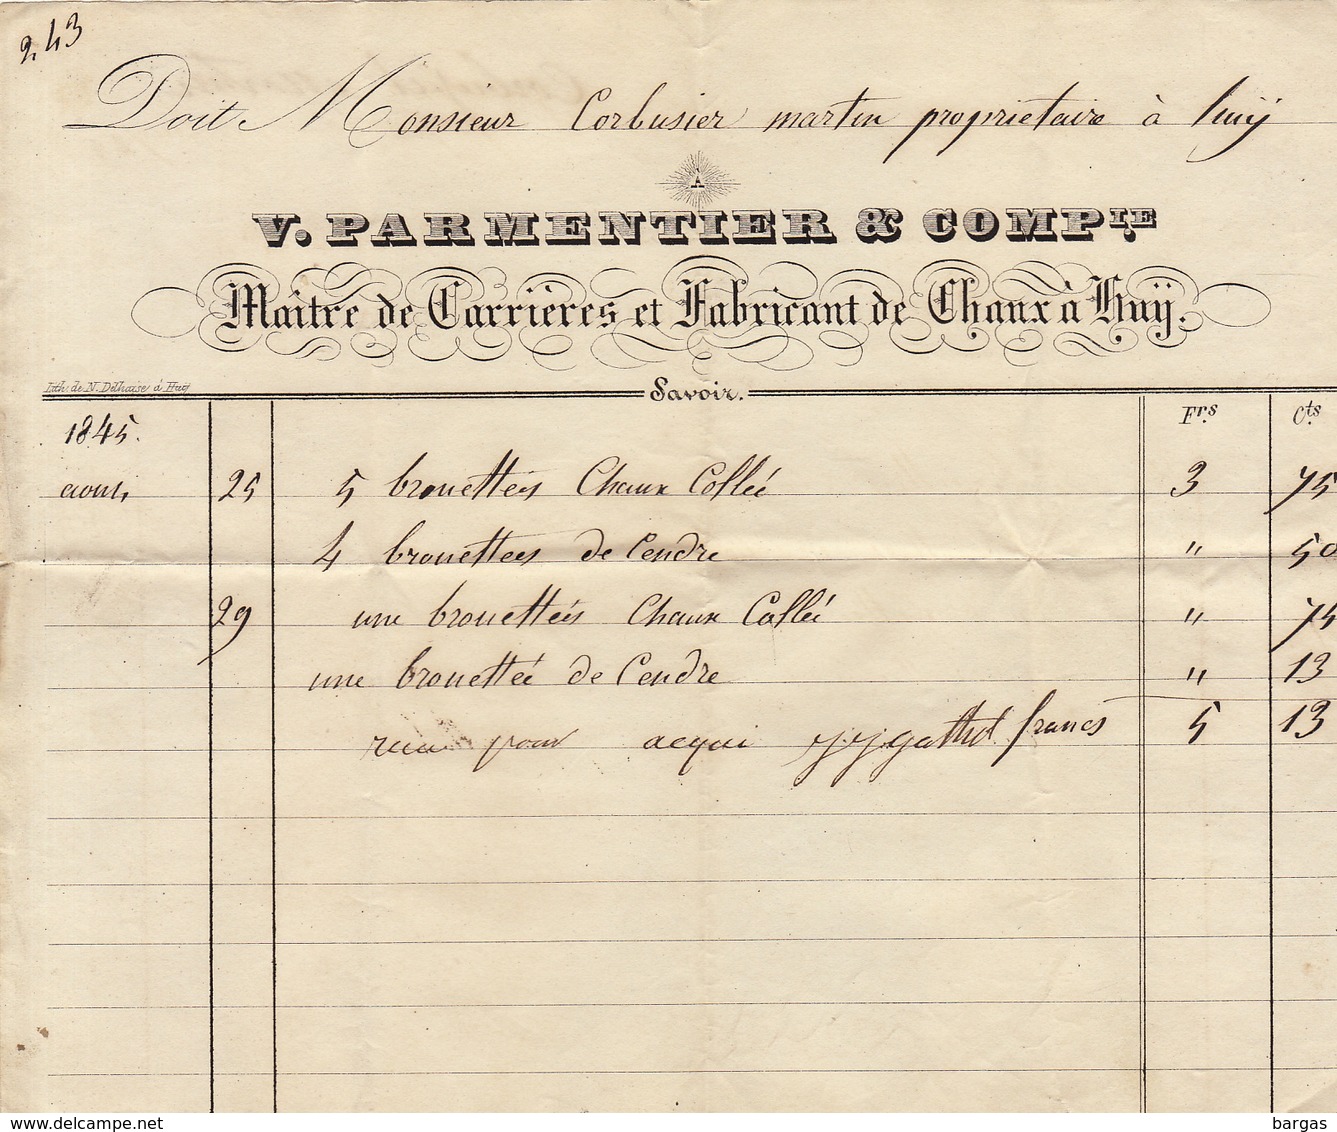 243
Doit Monsieur Corbusier martin proprietaire à huÿ
À
V. PARMENTIER & COMPIE
Maître de Carrières et Fabricant de Chaux à Huÿ.
Lith. de N. Delhaise à Huy
Savoir.
Frs Cts
1845.
aout, 25 5 brouettéés Chaux Colléé 3 75
4 brouettees de Cendre " 50
29 une brouettéés Chaux Colléé " 75
une brouettéé de Cendre " 13
5 13
pour acqui francs
delcampe.net
bargas